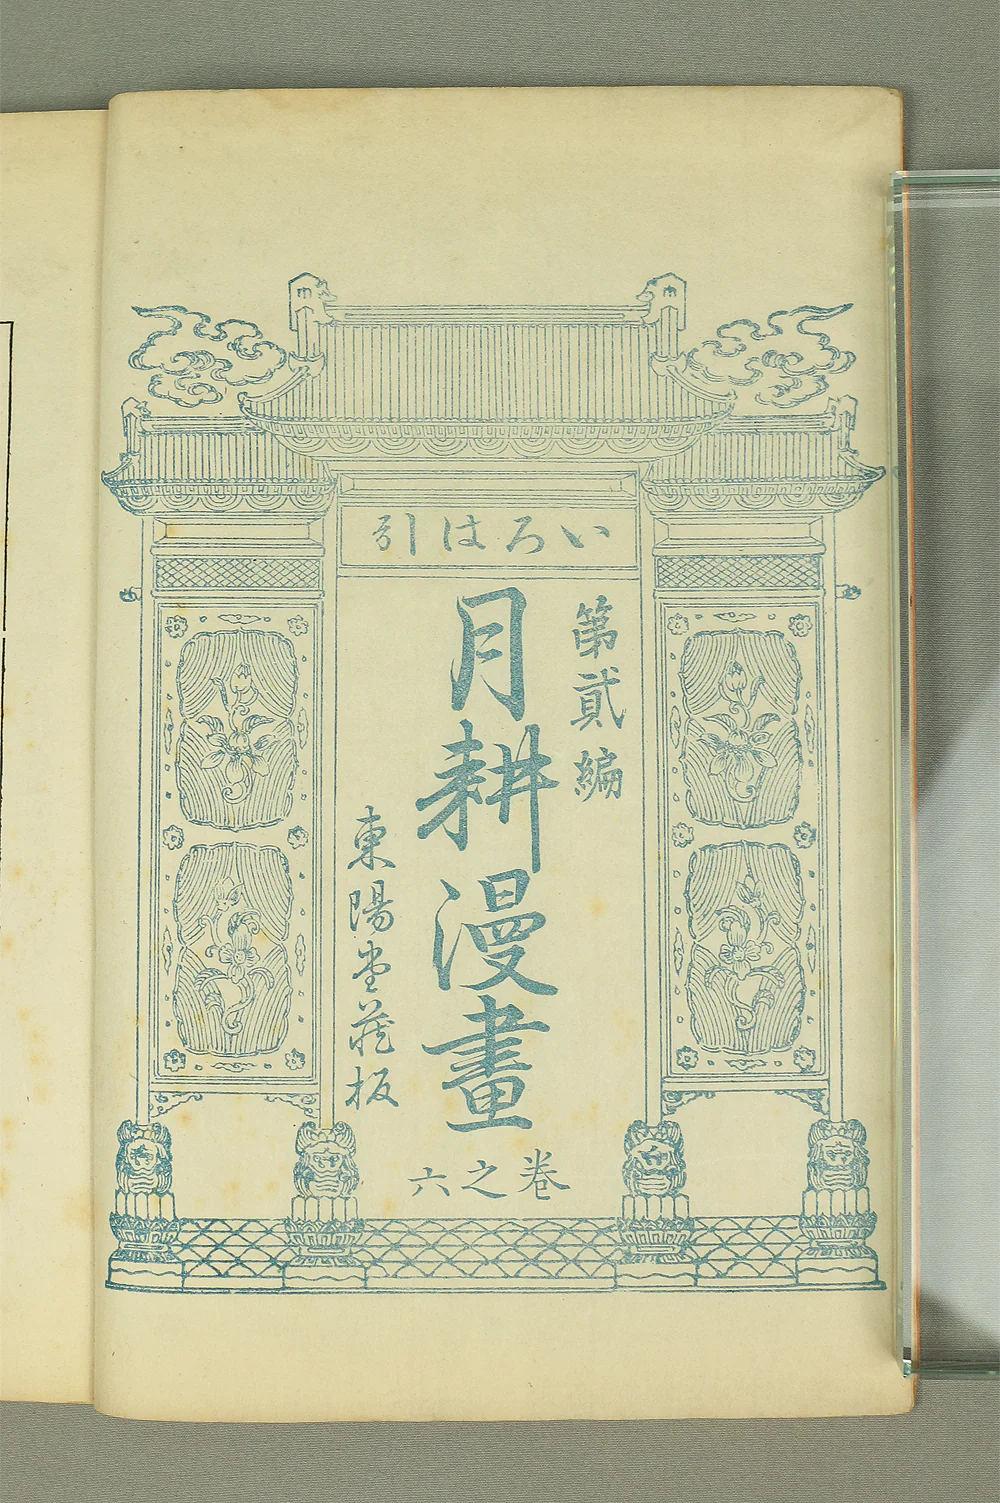 いろは引
第貳編
月耕漫畫
卷之六
東陽堂蔵板